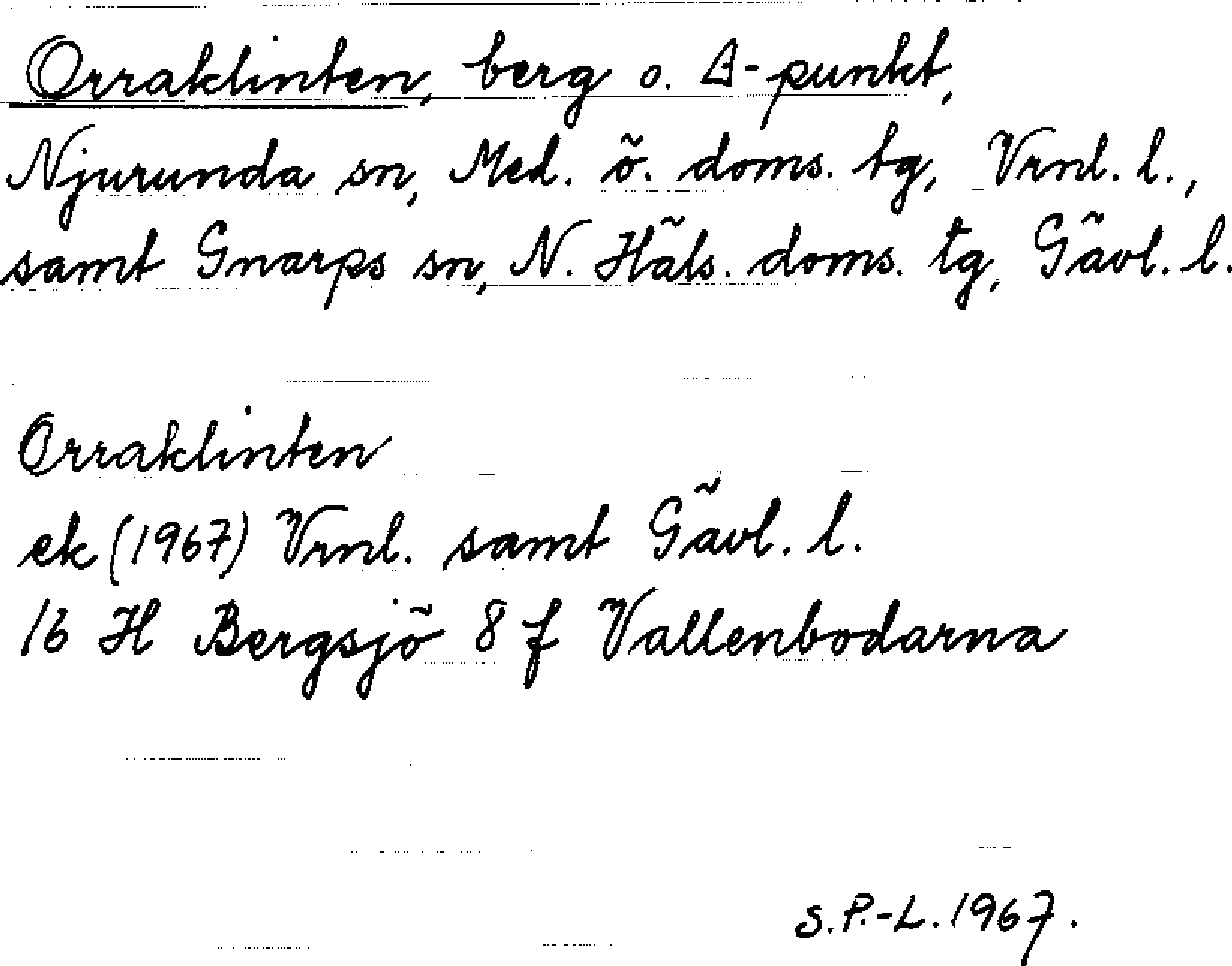 Orraklinten, berg o. Δ-punkt,
Njurunda sn, Med. ö. doms. tg, Vrnl. l.,
samt Gnarps sn, N. Häls. doms. tg, Gävl. l.
Orraklinten
ek (1967) Vrnl. samt Gävl. l.
16 H Bergsjö 8 f Vallenbodarna
S.P.-L. 1967.